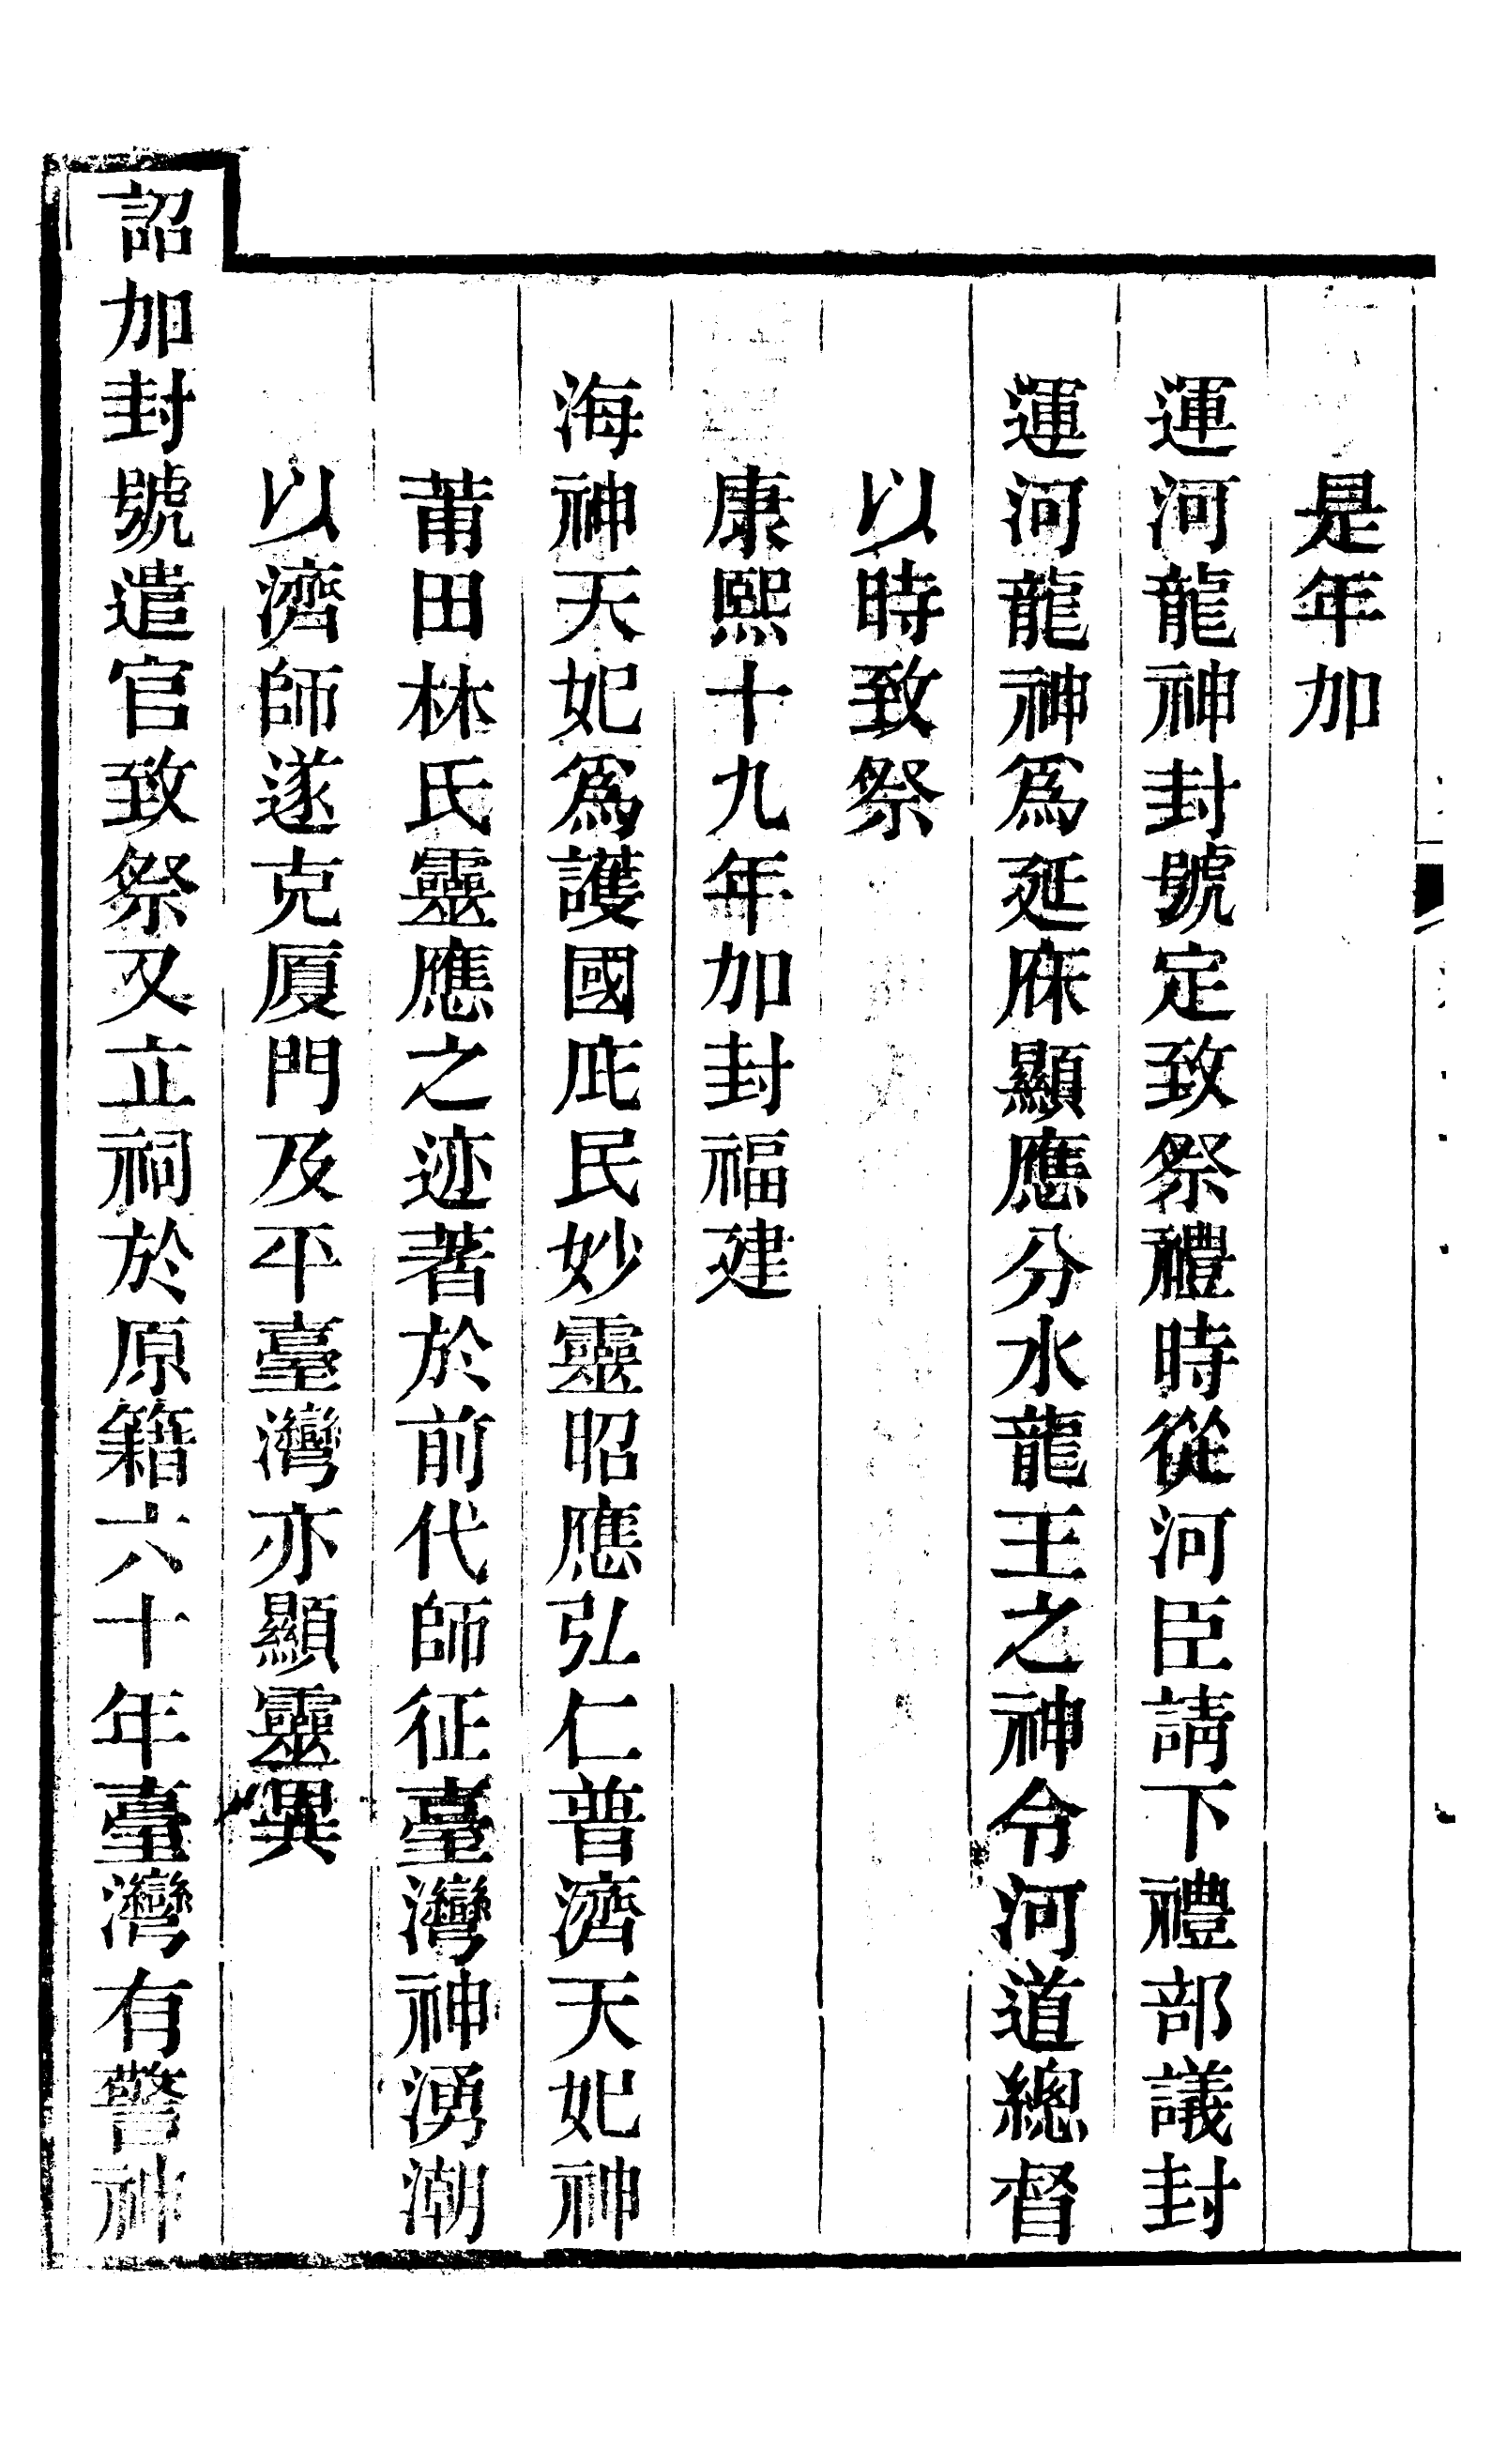 是年加
運河龍神封號定致祭禮時從河臣請下禮部議封
運河龍神爲延庥顯應分水龍王之神令河道總督
以時致祭
康熙十九年加封福建
海神天妃爲護國庇民妙靈昭應弘仁普濟天妃神
莆田林氏靈應之迹著於前代師征臺灣神湧潮
以濟師遂克厦門及平臺灣亦顯靈異
詔加封號遣官致祭又立祠於原籍六十年臺灣有警神